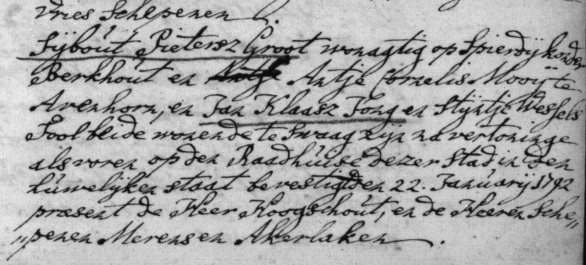 vries Schepenen
Sijbout Pietersz Groot wonagtig op Spierdijk onder
Berkhout en Antje Cornelis Mooij te
Avenhorn, en Jan Klaasz Jong en Stijntje Wessels
Fool beide wonende te Swaag zijn na vertoninge
als voren op den Raadhuise dezer Stad in den
huwelijken staat bevestigt den 22. Januarij 1792
præsent de Heer Hoogschout, en de Heeren Sche„
„penen Merens en Akerlaken.